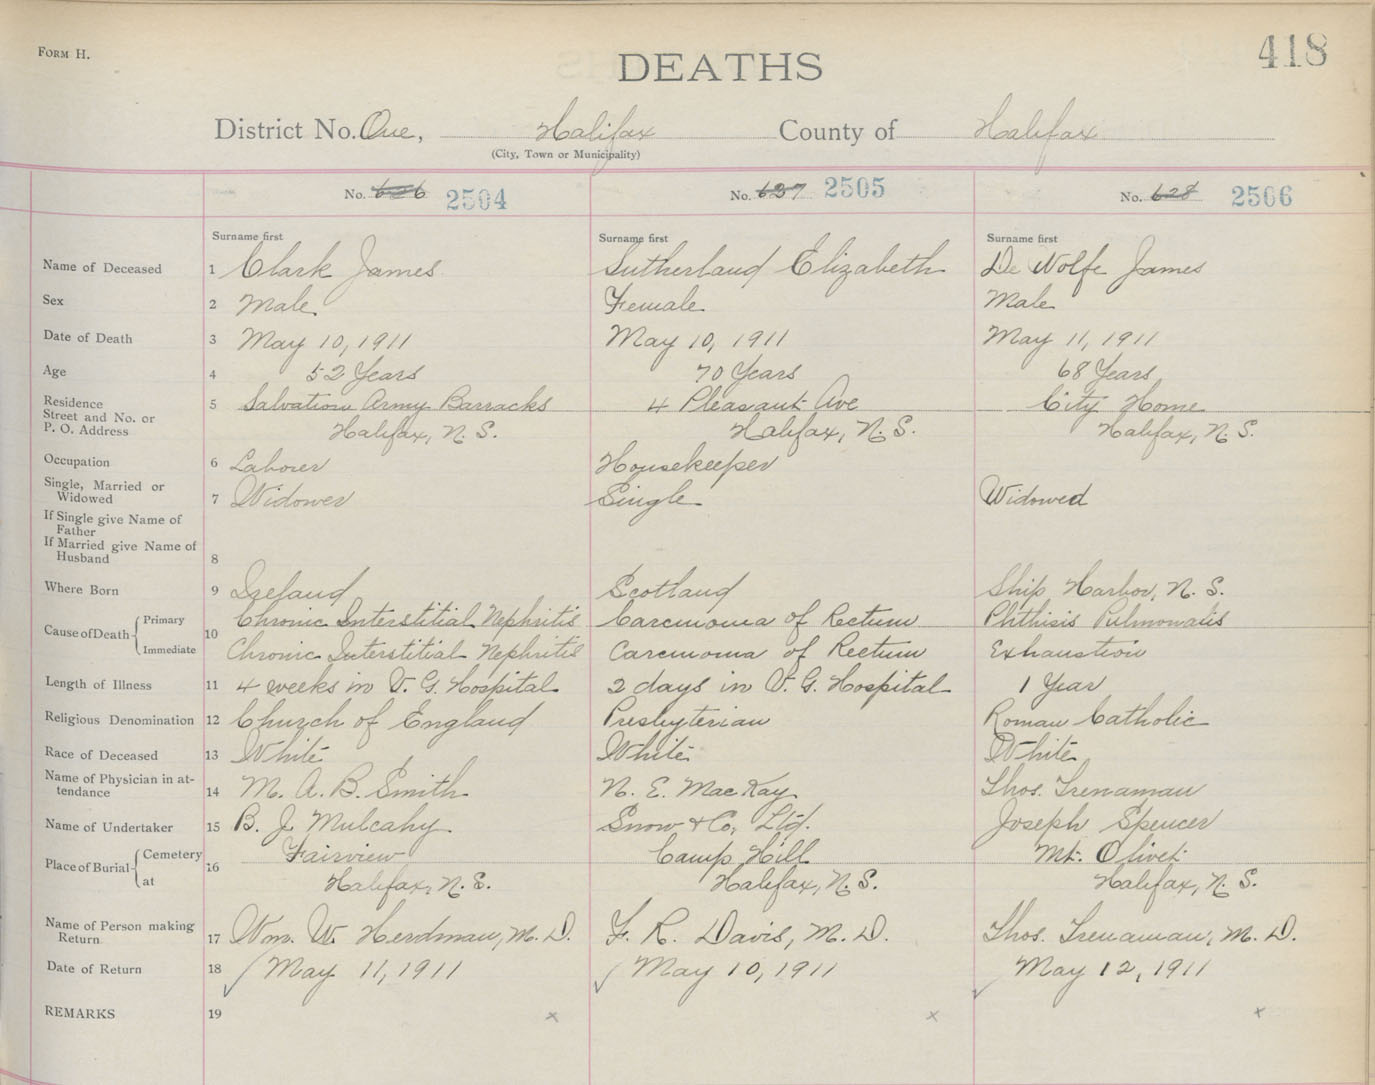 FORM H.
418
DEATHS
District No. One, Halifax County of Halifax
(City, Town or Municipality)
No. 626 2504 No. 637 2505 No. 628 2506
Surname first Surname first Surname first
Name of Deceased 1 Clark James Sutherland Elizabeth De Wolfe James
Sex 2 Male Female Male
Date of Death 3 May 10, 1911 May 10, 1911 May 11, 1911
Age 4 52 Years 70 Years 68 Years
Residence 5 Salvation Army Barracks 4 Pleasant Ave City Home
Street and No. or
P. O. Address Halifax, N. S. Halifax, N. S. Halifax, N. S.
Occupation 6 Laborer Housekeeper
Single, Married or
Widowed 7 Widower Single Widowed
If Single give Name of
Father
If Married give Name of
Husband 8
Where Born 9 Ireland Scotland Ship Harbor, N. S.
Cause of Death 10 Primary Chronic Interstitial Nephritis Carcinoma of Rectum Phthisis Pulmonalis
Immediate Chronic Interstitial Nephritis Carcinoma of Rectum Exhaustion
Length of Illness 11 4 weeks in V. G. Hospital 2 days in V. G. Hospital 1 Year
Religious Denomination 12 Church of England Presbyterian Roman Catholic
Race of Deceased 13 White White White
Name of Physician in at-
tendance 14 M. A. B. Smith N. E. MacKay Thos. Trenaman
Name of Undertaker 15 B. J. Mulcahy Snow & Co, Ltd. Joseph Spencer
Place of Burial 16 Cemetery Fairview Camp Hill Mt. Olivet
at Halifax, N. S. Halifax, N. S. Halifax, N. S.
Name of Person making
Return 17 Wm. W. Herdman, M. D. F. R. Davis, M. D. Thos. Trenaman, M. D.
Date of Return 18 May 11, 1911 May 10, 1911 May 12, 1911
REMARKS 19 x x x